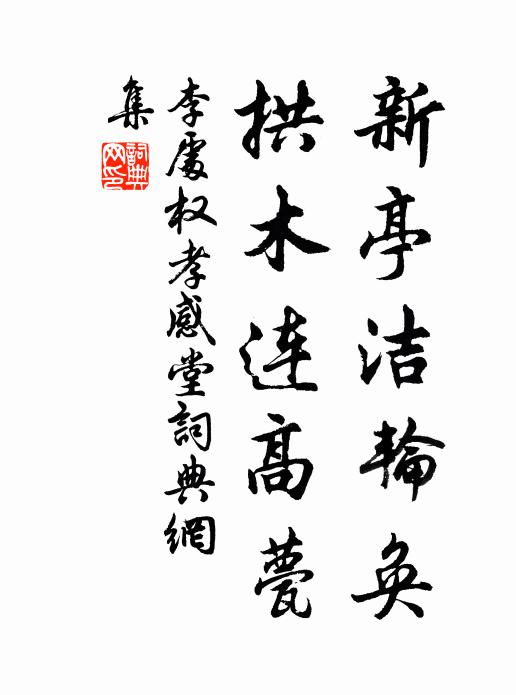 新亭洁輪奂
拱木連高甍
李處权孝感堂詞典網
集
詞典網印